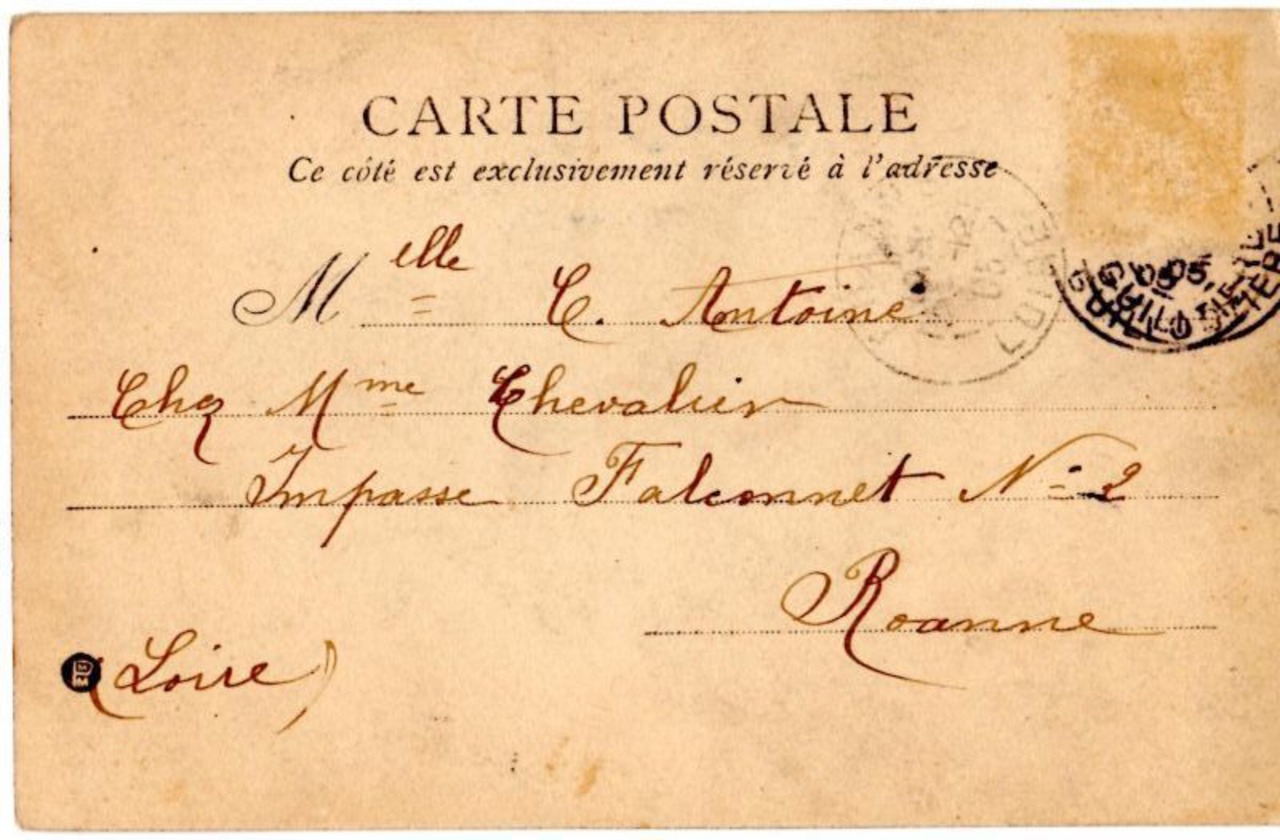 CARTE POSTALE
Ce côté est exclusivement réservé à l'adresse
Melle C. Antoine
Chez Mme Chevalier
Impasse Falconnet No 2
Roanne
(Loire)
LOIRE
05